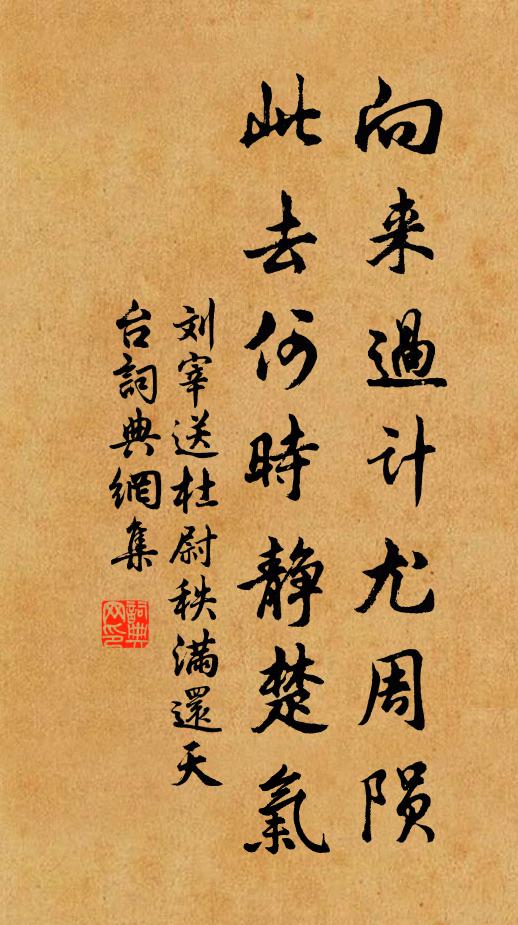 向来過计尤周陨
此去何時静楚氣
刘宰送杜尉秩满還天
台詞典網集
詞典网印